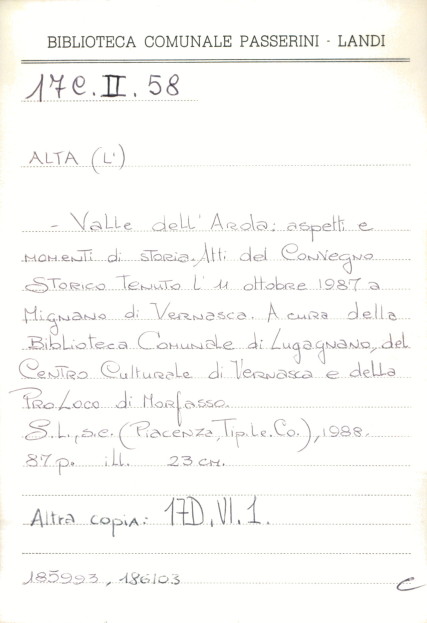 BIBLIOTECA COMUNALE PASSERINI - LANDI
17C.II.58
ALTA (L')
- Valle dell'Arda: aspetti e
momenti di storia. Atti del Convegno
Storico tenuto l'11 ottobre 1987 a
Mignano di Vernasca. A cura della
Biblioteca Comunale di Lugagnano, del
Centro Culturale di Vernasca e della
Pro Loco di Morfasso.
S.l., s.e. (Piacenza, Tip.Le.Co.), 1988.
87 p. ill. 23 cm.
Altra copia: 17D.VI.1.
185993, 186103
C